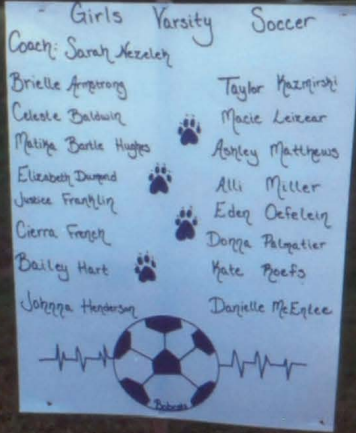 Girls Varsity Soccer
Coach: Sarah Nezelek
Brielle Armstrong
Celeste Baldwin
Matika Bartle Hughes
Elizabeth Dumond
Justice Franklin
Cierra French
Bailey Hart
Johnna Henderson
Taylor Kazmirski
Macie Leizear
Ashley Matthews
Alli Miller
Eden Oefelein
Donna Palmatier
Kate Roefs
Danielle McEntee
Bobcats